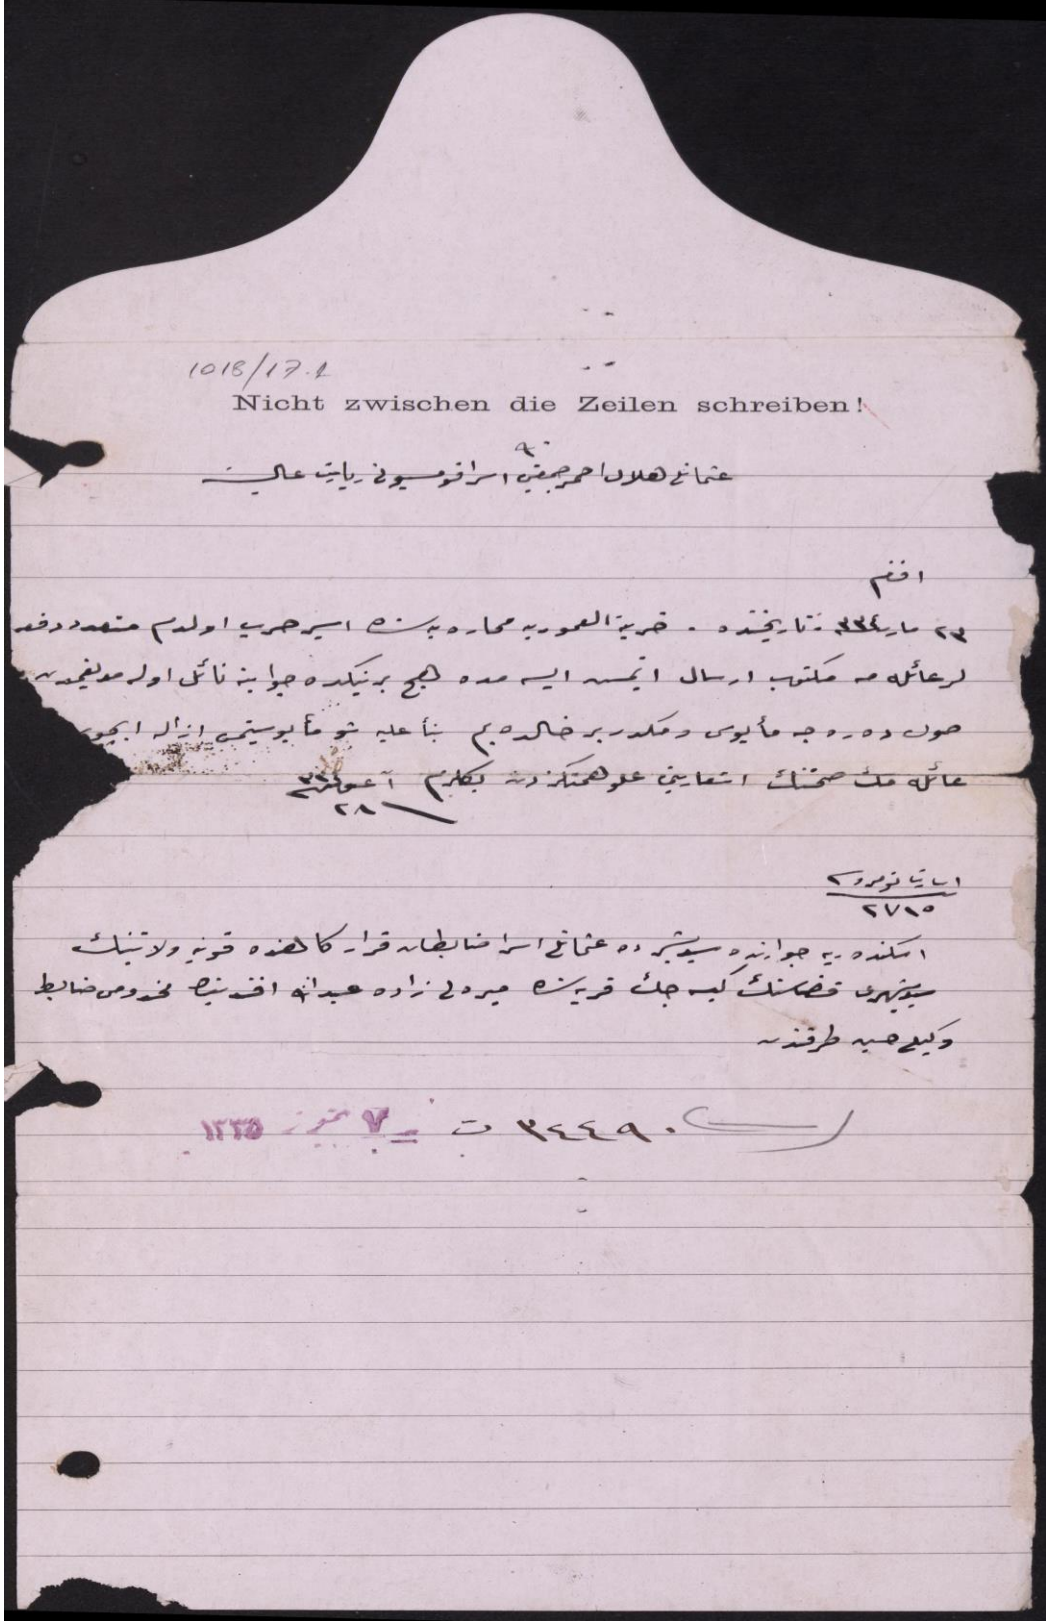 1018/17.1
Nicht zwischen die Zeilen schreiben!
عثمانلی هلال احمر جمعیتی اسرا قومسیونی ریاست عالیه‌سنه
افندم
٢٣ مارت ٣٣٤ تاریخنده خربة العموریه محاربه‌سنده اسیر حرب اولدم متعدد دفعه
لر عائله‌مه مکتوب ارسال ایتمش ایسه‌مده هیچ برینکده جوابنه نائل اوله‌مدیغمدن
صوك درجه مأیوس ومکدر بر حالده‌یم بناءً علیه شو مأیوسیتمی ازاله ایچون
عائله‌مك صحتنك اشعارینی علو همتکزدن بکلرم ٢٨ آغستوس ٣٣٤
اسارت نومروسی
٢٧١٥
اسکندریه جوارنده سیدی بشرده عثمانلی اسرا ضابطان قرارکاهنده قونیه ولایتنك
سیدیشهری قضاسنك کیسه‌جك قریه‌سنده میره‌لی زاده عبدالله افندینك مخدومی ضابط
وکیلی حسین طرفندن
٣٤٤٩٠ ت ٧ تموز ١٣٣٥